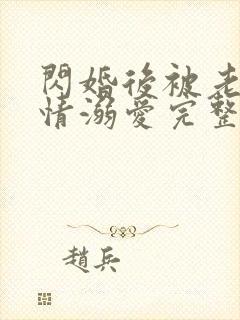 閃婚後被老
情溺愛完整
趙兵